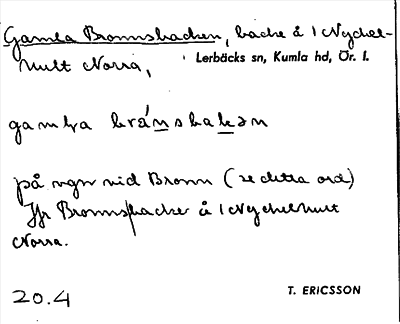 Gamla Bromsbacken, backe å 1 Nyckel-
hult Norra,
Lerbäcks sn, Kumla hd, Ör. l.
på vägen vid Bromn (se detta ord)
Jfr Bromsbacke å 1 Nyckelhult
Norra.
20.4
T. ERICSSON